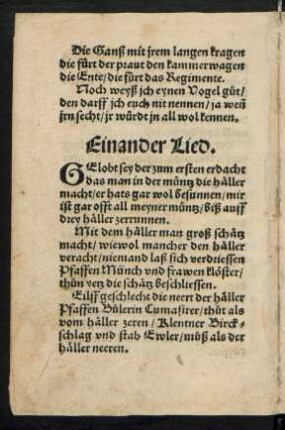 Die Ganß mit jrem langen kragen
die fürt der praut den kammerwagen
die Ente/die fürt das Regimente.
Noch weyß jch eynen Vogel güt/
den darff jch euch nit nennen/ja wen
jrn secht/jr würdt jn all wol kennen.
Einander Lied.
GElobt sey der zum ersten erdacht
das man in der müntz die häller
macht/er hats gar wol besunnen/mir
ist gar offt all meyner müntz/biß auff
drey häller zerrunnen.
Mit dem häller man groß schätz
macht/wiewol mancher den häller
veracht/niemand laß sich verdriessen
Pfaffen Münch vnd frawen klöster/
thün yetz die schätz beschliessen.
Eilff geschlecht die neert der häller
Pfaffen Bülerin Cumasirer/thüt als
vom häller zeren/Klentner Birck-
schlag vnd stab Ewler/müß als der
häller neeren.